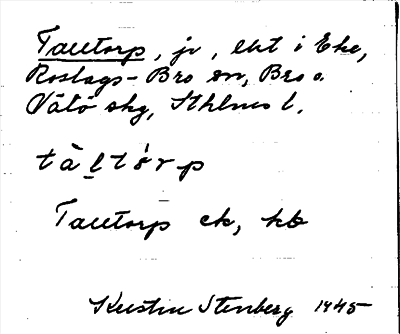 Talltorp, jr, lht i Eke,
Roslags-Bro sn, Bro o.
Vätö skg, Sthlms l.
tàltórp
Talltorp ek, kb
Kerstin Stenberg 1945